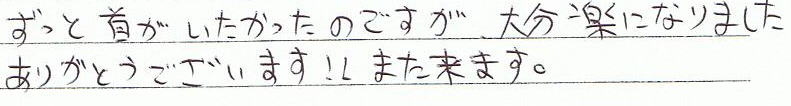 ずっと首がいたかったのですが、大分楽になりました
ありがとうございます!! また来ます。